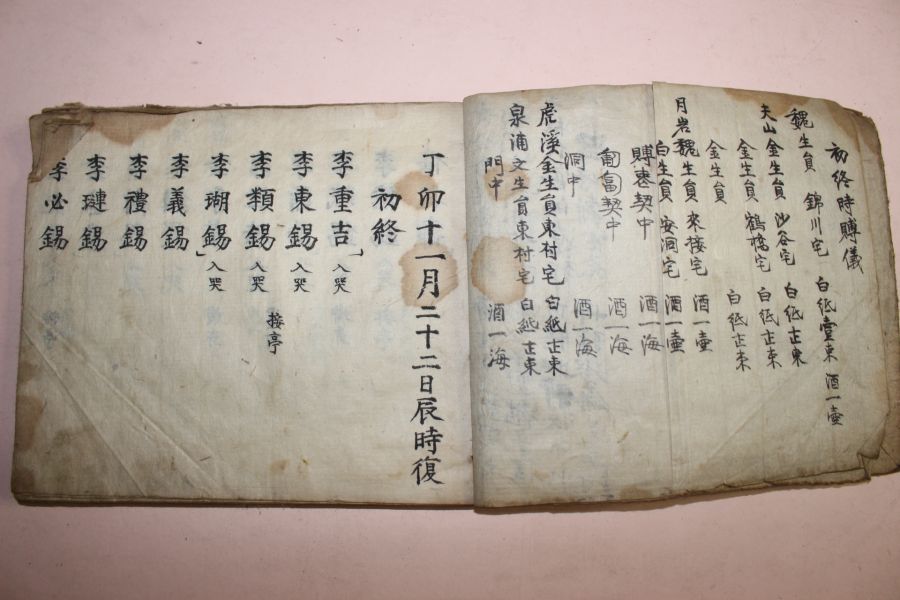 初終時賻儀
魏生員 錦川宅 白紙壹束 酒一壺
夫山金生員 沙谷宅 白紙壹束
金生員 鶴橋宅 白紙壹束
金生員 白紙壹束
月岩魏生員 來接宅 酒一壺
白生員 安洞宅 酒一壺
賻喪契中 酒一海
契中 酒一海
洞中 酒一海
虎溪金生員東村宅 白紙壹束
泉浦文生員東村宅 白紙壹束
門中 酒一海
丁卯十一月二十二日辰時復
初終
李重吉 入哭
李東錫 入哭
接亭
李類錫 入哭
李瑚錫 入哭
李義錫
李禮錫
李璉錫
李必錫